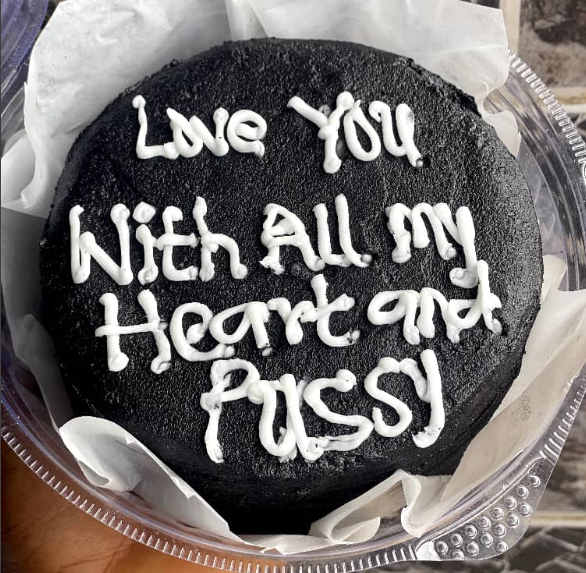 Love You
With All my
Heart and
Pussy